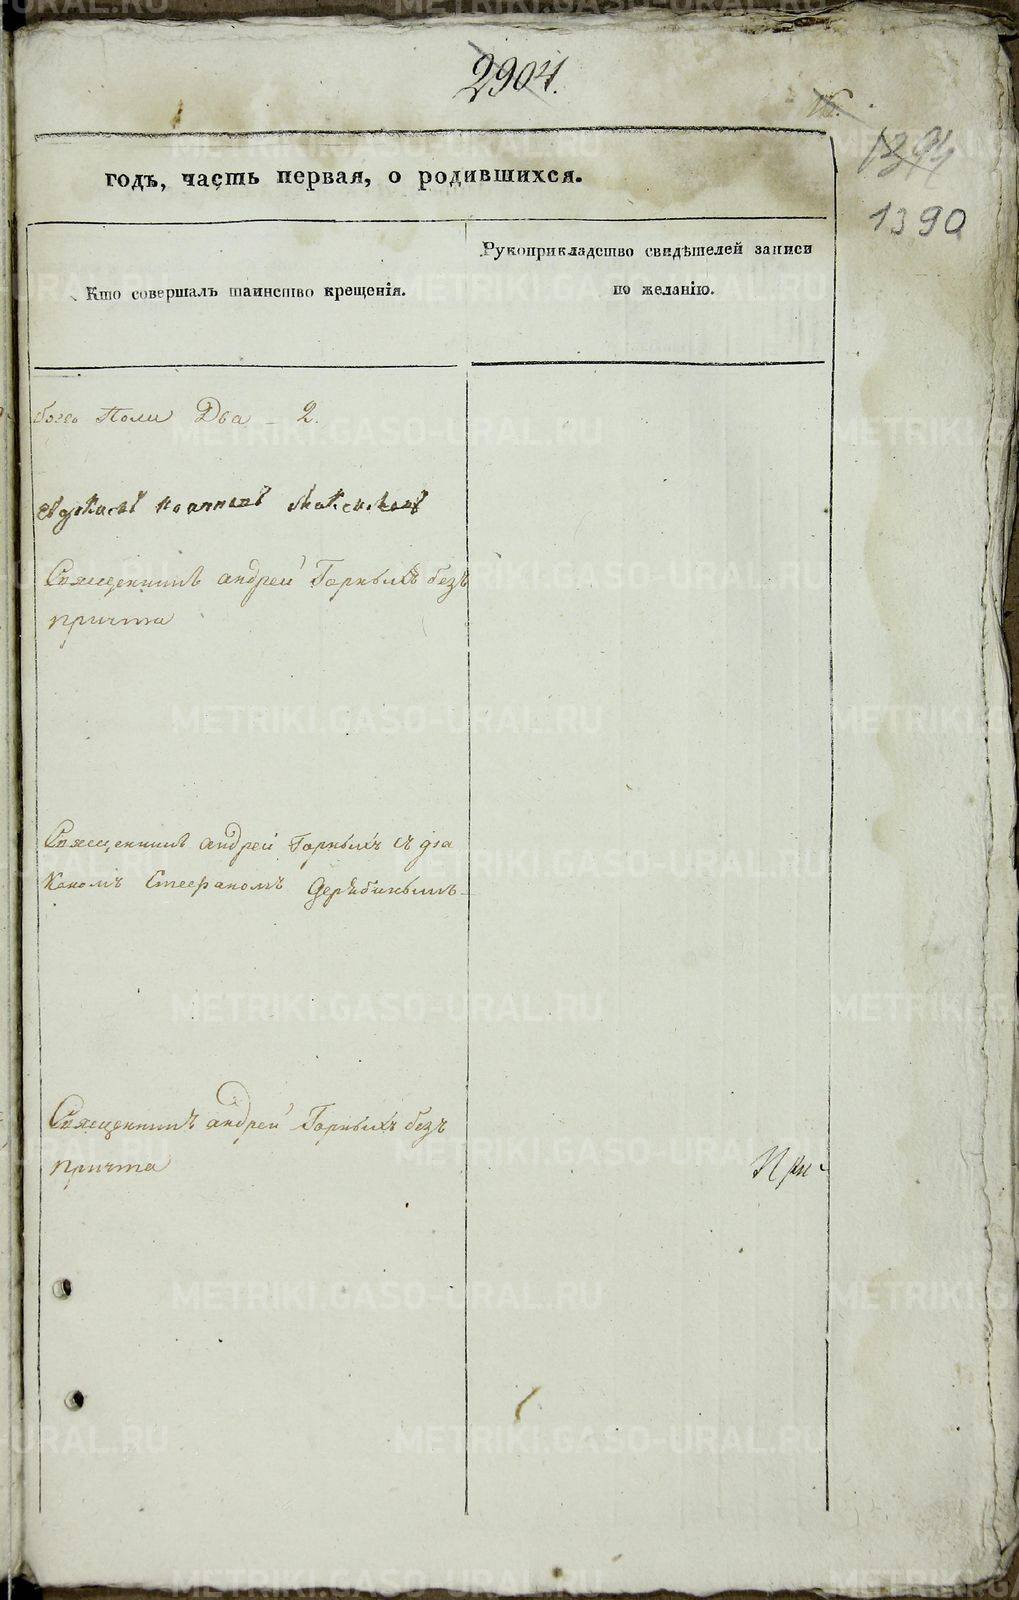 2904.
1394
1390
годъ, часть первая, о родившихся.
Кто совершалъ таинство крещенія.
Рукоприкладство свидѣтелей записи
по желанію.
Поли Два – 2.
Священникъ андрей Горныхъ безъ
причта
Священникъ андрей Горныхъ съ дїа
кономъ Стефаномъ Дерябинымъ
Священникъ андрей Горныхъ безъ
причта
При-
METRIKI.GASO-URAL.RU